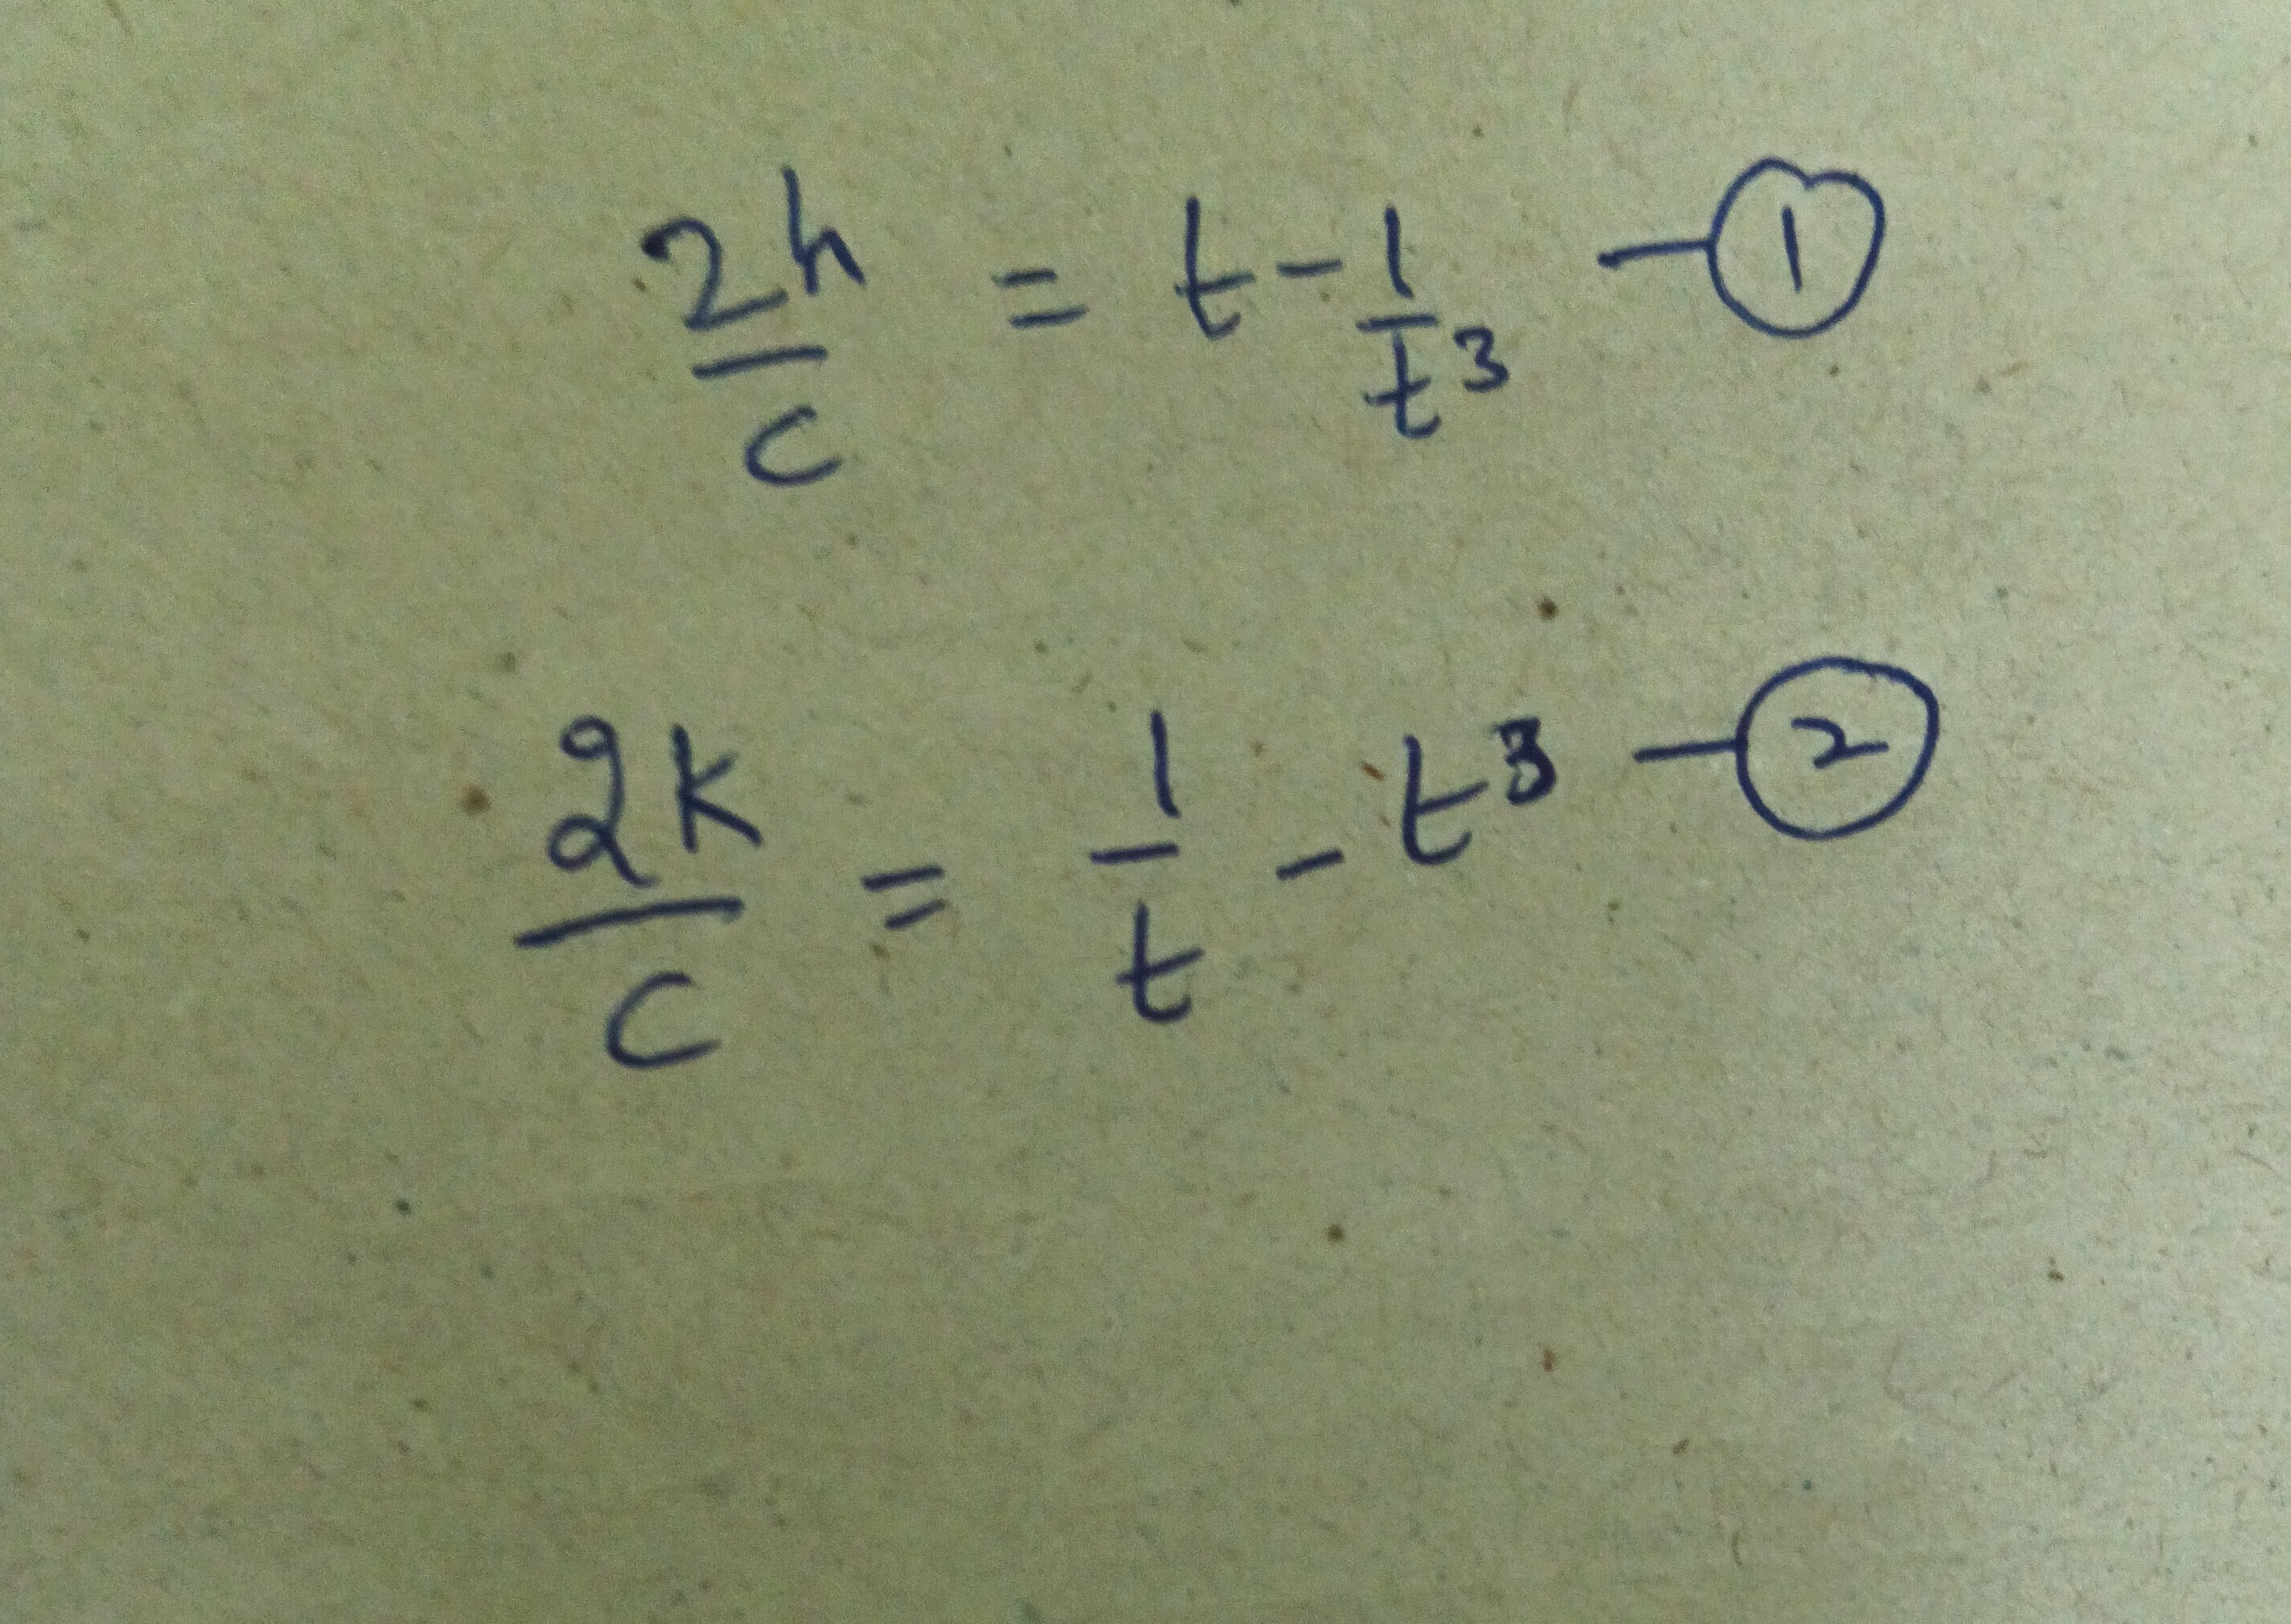 2h/c = t - 1/t³ — ①
2k/c = 1/t - t³ — ②